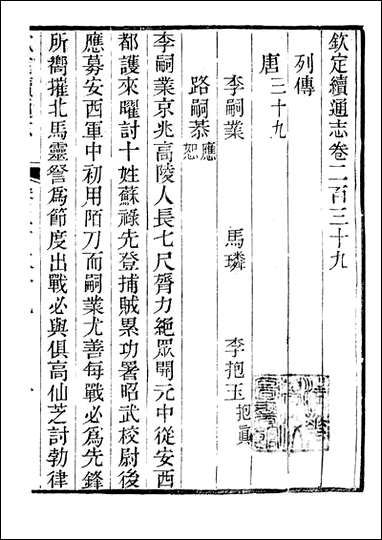 欽定續通志卷二百三十九
列傳
唐三十九
李嗣業 馬璘 李抱玉抱真
路嗣恭應恕
李嗣業京兆高陵人長七尺膂力絕眾開元中從安西
都護來曜討十姓蘇祿先登捕賊累功署昭武校尉後
應募安西軍中初用陌刀而嗣業尤善每戰必為先鋒
所嚮摧北馬靈詧為節度出戰必與俱高仙芝討勃律